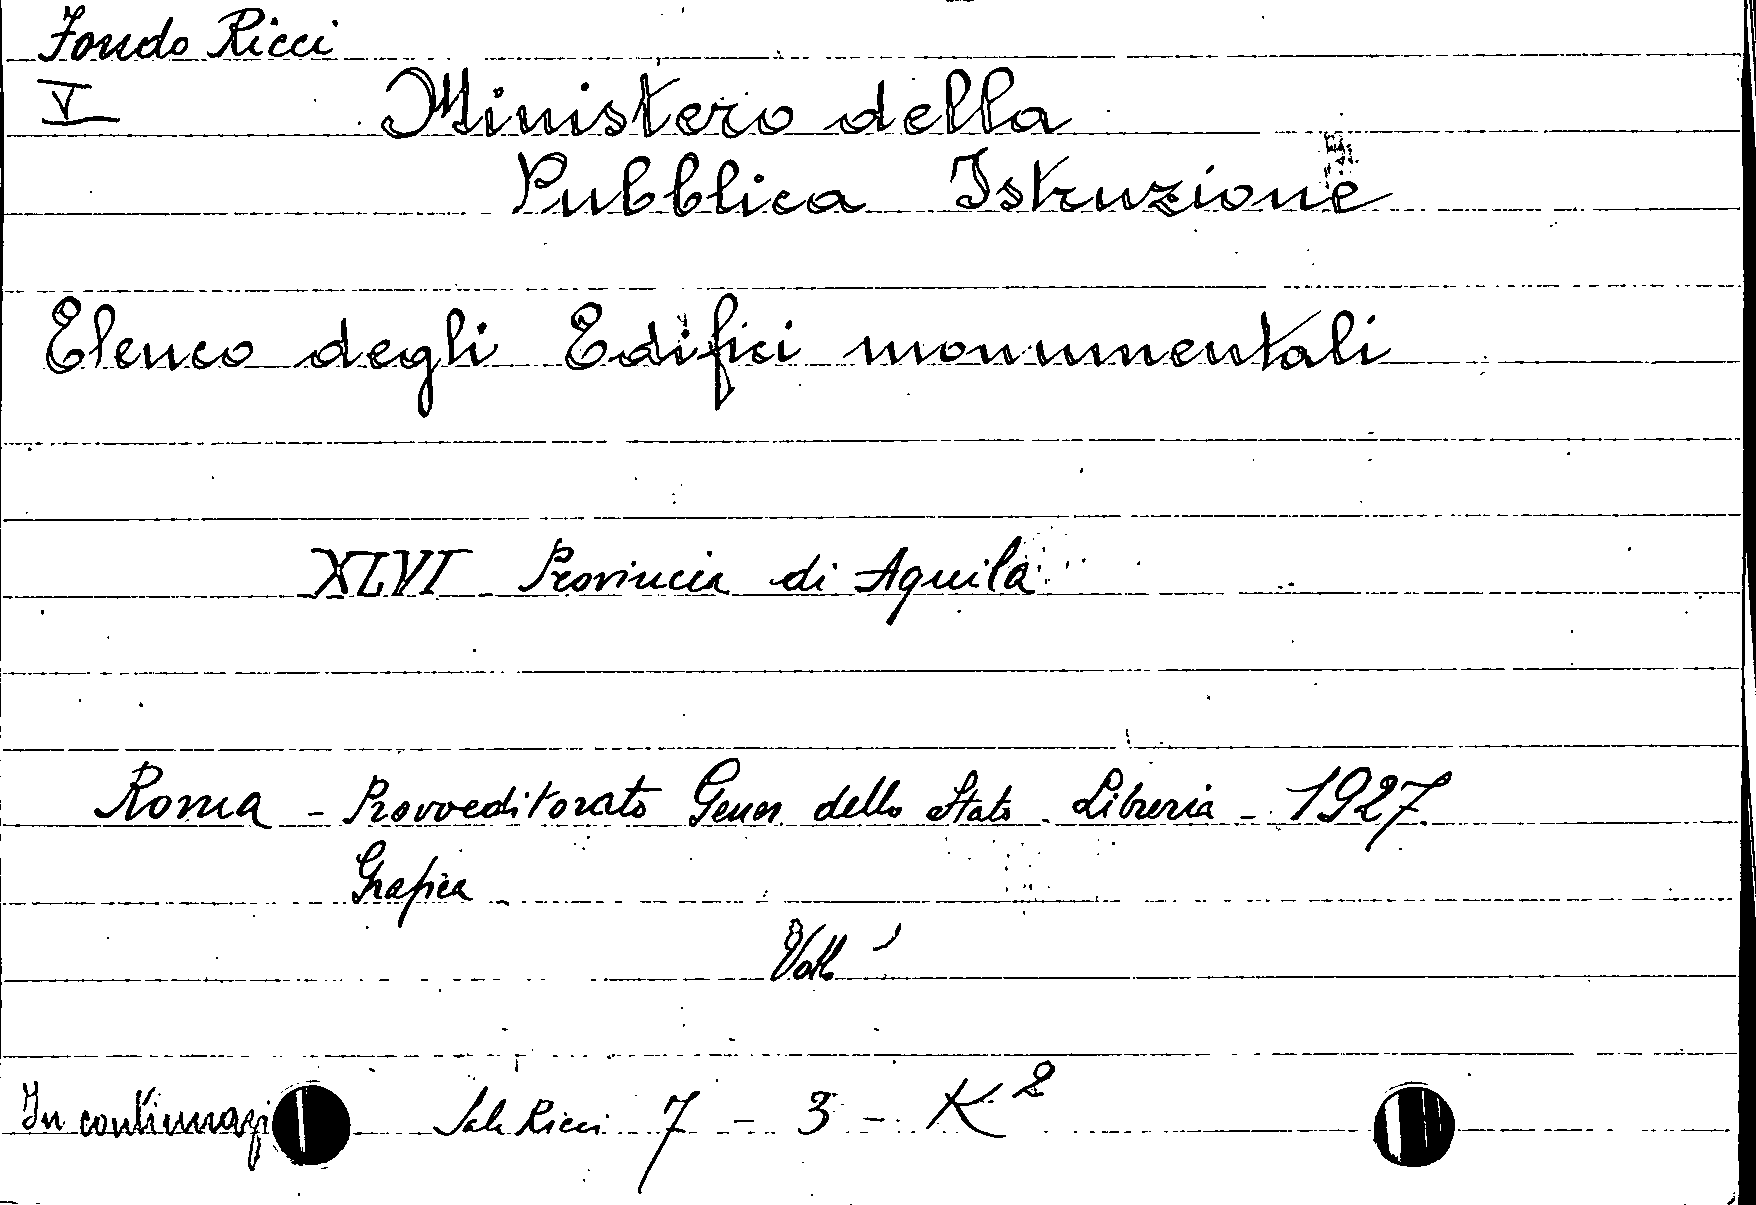 Fondo Ricci
V Ministero della
Pubblica Istruzione
Elenco degli Edifici monumentali
XLVI Provincia di Aquila
Roma - Provveditorato Gener dello Stato - Libreria - 1927
Grafica
In continuazi Sala Ricci 7 - 3 - K²